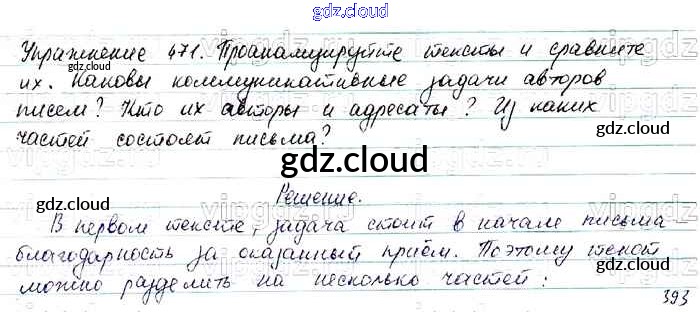 gdz.cloud
Упражнение 471. Проанализируйте тексты и сравните
их. Каковы коммуникативные задачи авторов
писем? Кто их авторы и адресаты? Из каких
частей состоят письма?
gdz.cloud
Решение.
В первом тексте, задача стоит в начале письма
благодарность за оказанный приём. Поэтому текст
можно разделить на несколько частей:
393